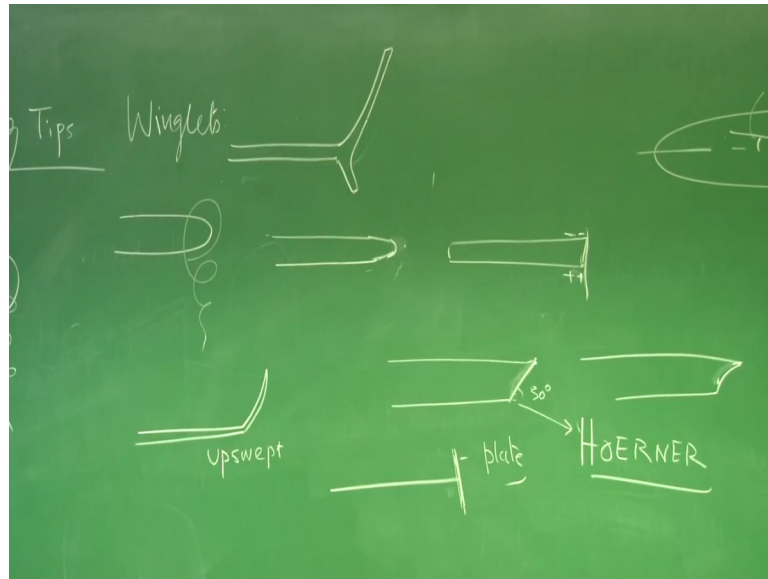 Tips
Winglets:
- -
++
30°
upswept
plate
HOERNER